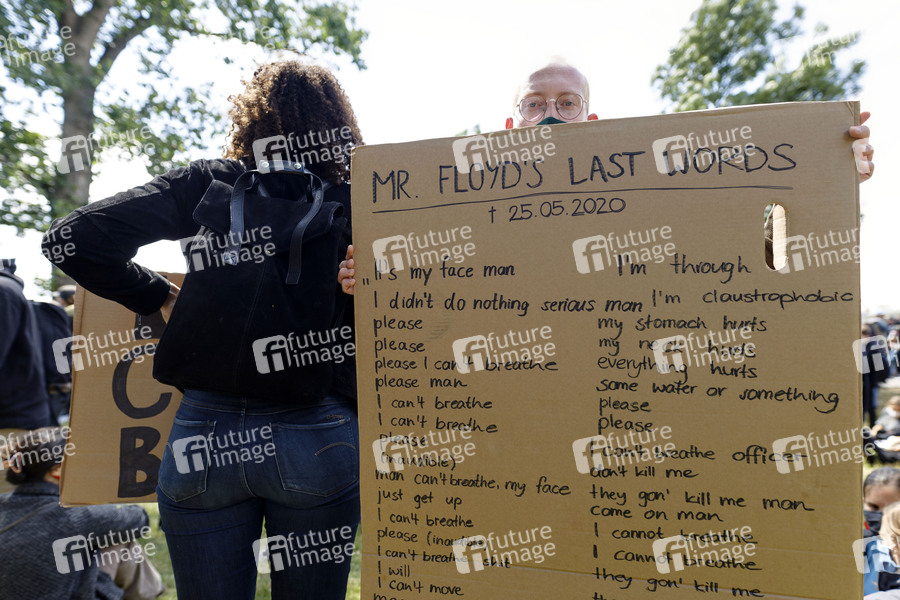 MR. FLOYD'S LAST WORDS
† 25.05.2020
"It's my face man
I didn't do nothing serious man
please
please
please I can't breathe
please man
I can't breathe
I can't breathe
please
(inaudible)
man can't breathe, my face
just get up
I can't breathe
please (inaudible)
I can't breathe shit
I will
I can't move
I'm through
I'm claustrophobic
my stomach hurts
my neck hurts
everything hurts
some water or something
please
please
I can't breathe officer
don't kill me
they gon' kill me man
come on man
I cannot breathe
I cannot breathe
they gon' kill me
C
B
future image